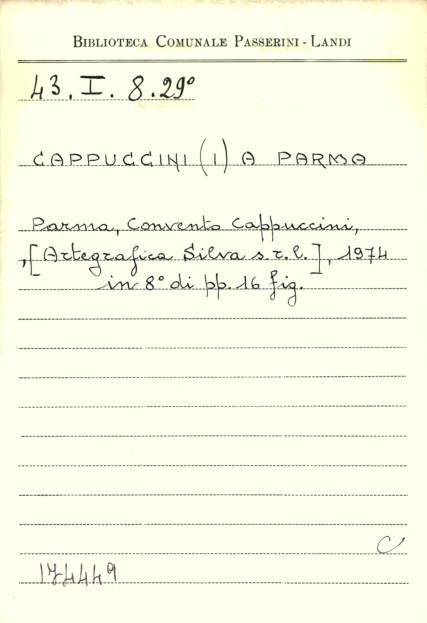 BIBLIOTECA COMUNALE PASSERINI - LANDI
43. I. 8.29°
CAPPUCCINI (I) A PARMA
Parma, Convento Cappuccini,
,[Artegrafica Silva s.r.l.], 1974
in 8° di pp. 16 fig.
C
174449